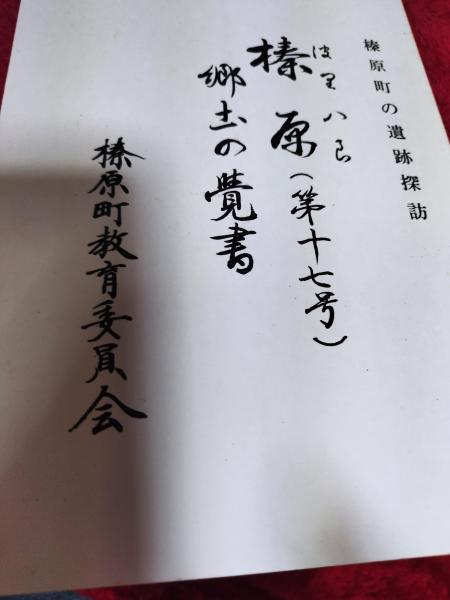 榛原町の遺跡探訪
波里八良
榛原(第十七号)
郷土の覺書
榛原町教育委員会